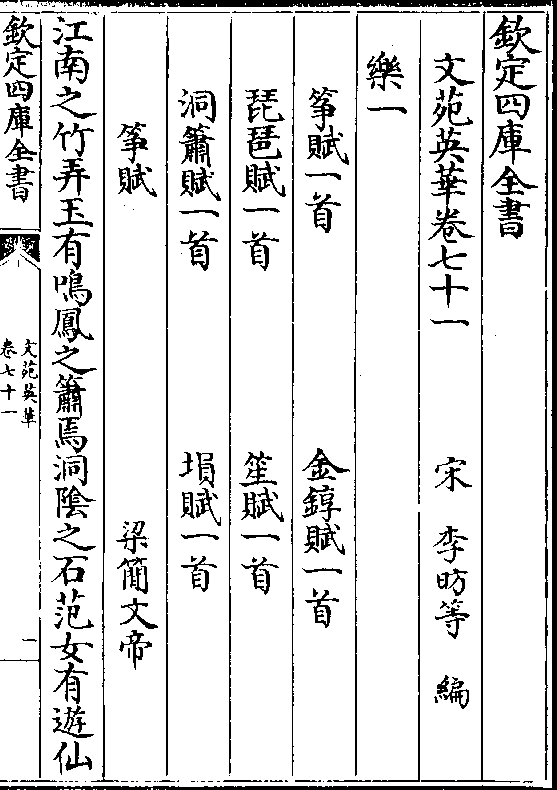 欽定四庫全書
文苑英華卷七十一 宋 李昉等 編
樂一
箏賦一首 金錞賦一首
琵琶賦一首 笙賦一首
洞簫賦一首 塤賦一首
箏賦 梁簡文帝
江南之竹弄玉有鳴鳳之簫焉洞陰之石范女有遊仙
欽定四庫全書
文苑英華
卷七十一
一